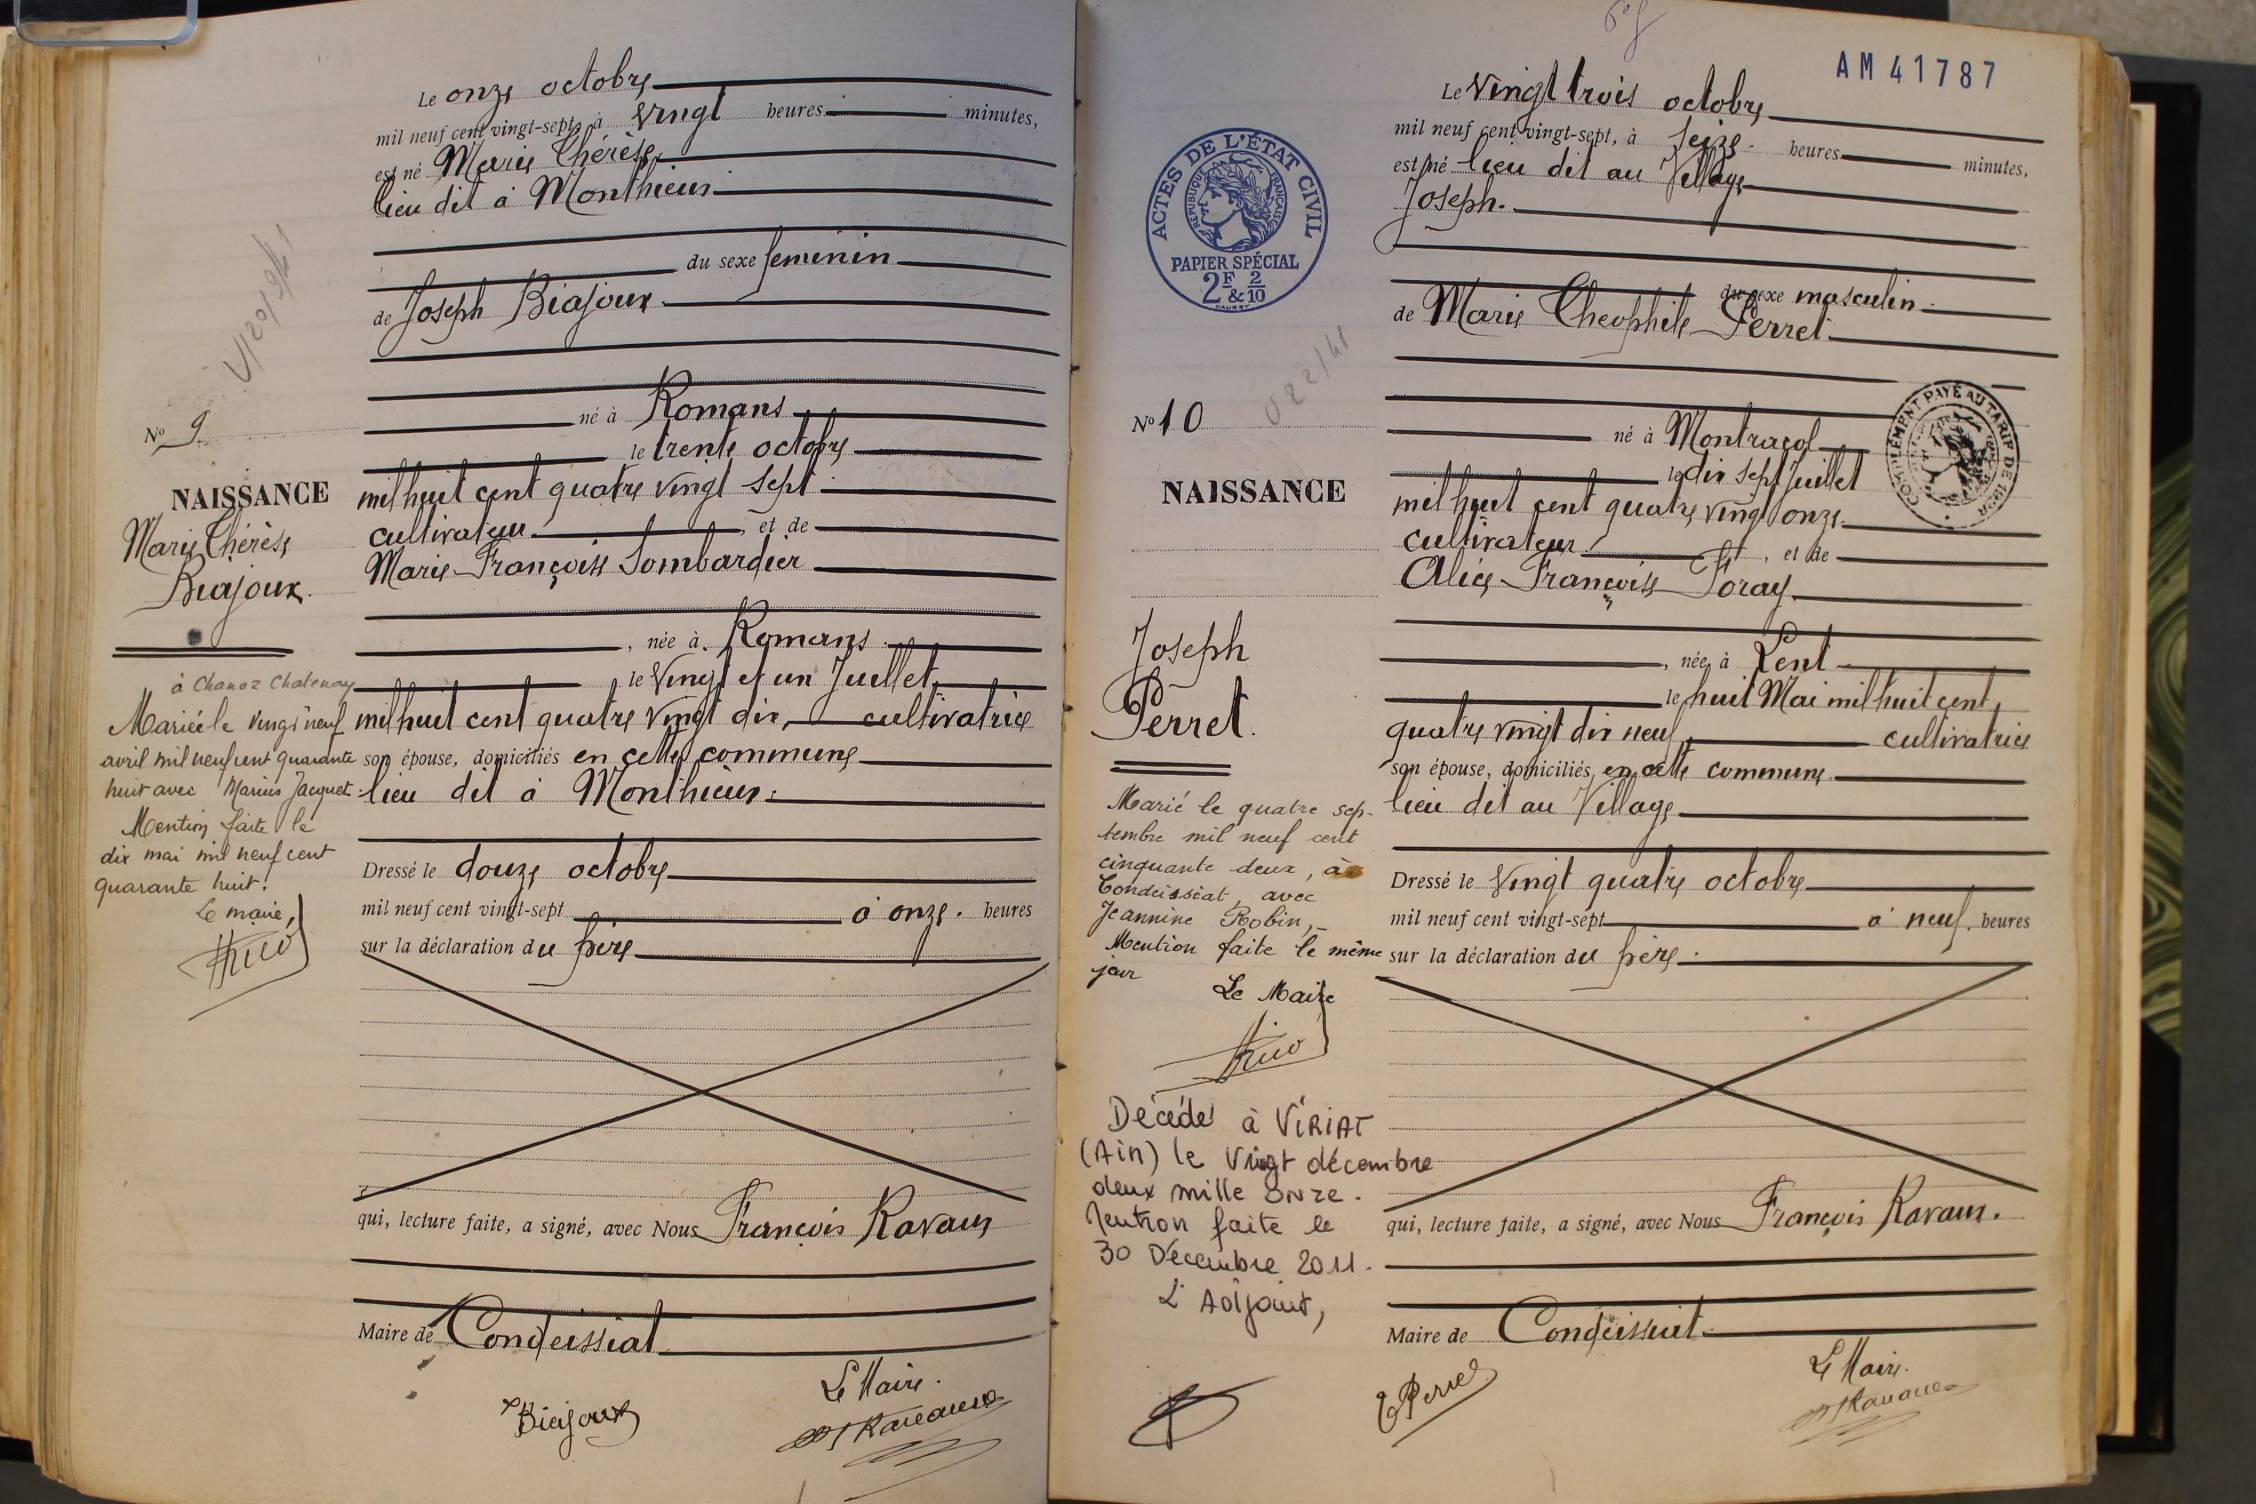 Le onze octobre
mil neuf cent vingt-sept, à vingt heures minutes,
est né Marie Thérèse
lieu dit à Monthieux
du sexe feminin
de Joseph Biajoux
né à Romans
le trente octobre
mil huit cent quatre vingt sept
cultivateur, et de
Marie Françoise Lombardier
, née à Romans
le vingt et un Juillet
mil huit cent quatre vingt dix, cultivatrice
son épouse, domiciliés en cette commune
lieu dit à Monthieux
Dressé le douze octobre
mil neuf cent vingt-sept à onze heures
sur la déclaration du père
qui, lecture faite, a signé, avec Nous François Ravaux
Maire de Condeissiat
Le Maire.
Biajoux
No 9
NAISSANCE
Marie Thérèse
Biajoux.
à Chanoz Chatenay
Mariée le vingt neuf
avril mil neuf cent quarante
huit avec Marius Jacquet
Mention faite le
dix mai mil neuf cent
quarante huit.
Le maire,
AM41787
Le Vingt trois octobre
mil neuf cent vingt-sept, à seize heures minutes,
est né lieu dit au Village
Joseph.
du sexe masculin
de Marie Theophile Perret
né à Montracol
le dix sept Juillet
mil huit cent quatre vingt onze
cultivateur, et de
Alice Françoise Foray
, née à Lent
le huit Mai mil huit cent
quatre vingt dix neuf cultivatrice
son épouse, domiciliés en cette commune
lieu dit au Village
Dressé le vingt quatre octobre
mil neuf cent vingt-sept à neuf heures
sur la déclaration du père
qui, lecture faite, a signé, avec Nous François Ravaux.
Maire de Condeissiat
Le Maire.
Perret
ACTES DE L'ÉTAT CIVIL
RÉPUBLIQUE FRANÇAISE
PAPIER SPÉCIAL
2F & 2/10
COMPLÉMENT PAYÉ AU TARIF DE
No 10
NAISSANCE
Joseph
Perret.
Marié le quatre sep-
tembre mil neuf cent
cinquante deux, à
Condeissiat, avec
Jeannine Robin,
Mention faite le même
jour
Le Maire
Décédé à VIRIAT
(Ain) le Vingt décembre
deux mille onze.
Mention faite le
30 Décembre 2011.
L'Adjoint,